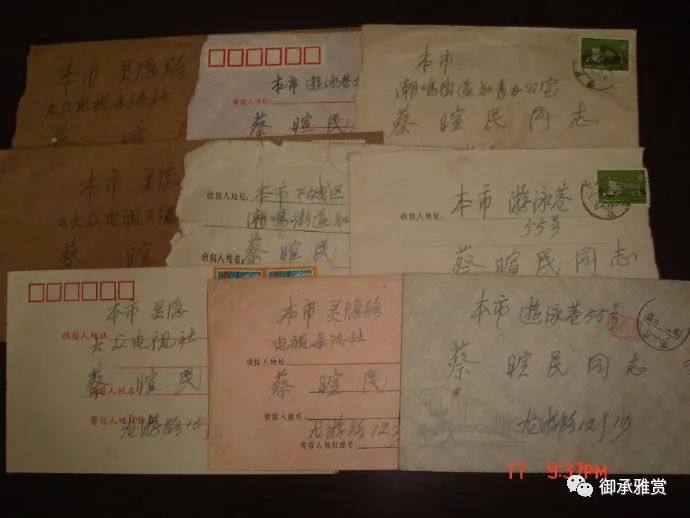 本市 灵隐路
大众电视杂志社
蔡 暄 民
本市 游泳巷
寄信人地址
蔡 暄 民
本市
潮鸣街道知青办公室
蔡 暄 民 同 志
本市 灵隐
《大众电视》
蔡 暄
收信人地址: 本市下城区
潮鸣街道知
收信人姓名: 蔡 暄 民
收信人地址: 本市 游泳巷
55号
蔡 暄 民 同 志
本市 灵隐
收信人地址
大众电视社
蔡 暄 民
寄信人姓名
寄信人地址 龙游路15
本市 灵隐路
电视杂志社
收信人地址
蔡 暄 民
收信人姓名
龙游路12号
寄信人地址姓名
本市 游泳巷55号
蔡 暄 民 同 志
龙游路12号沙
17 9:37PM
御承雅赏